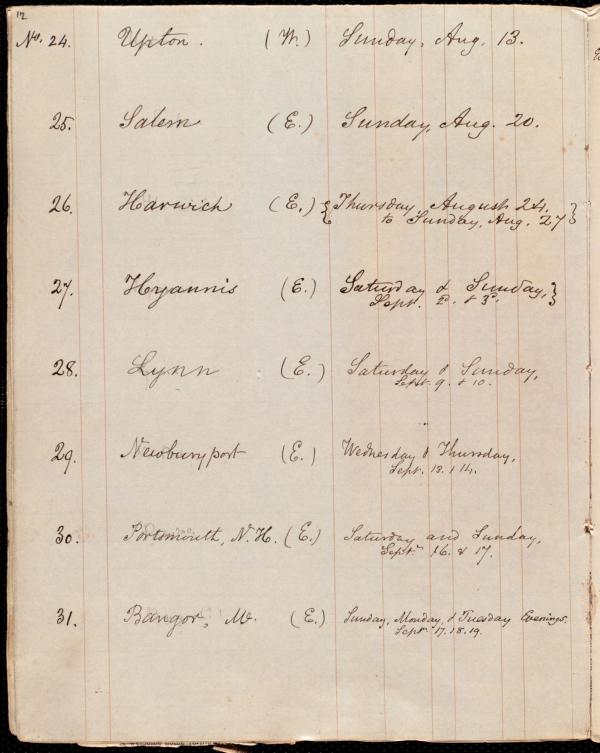 12
No. 24. Upton. (W.) Sunday, Aug. 13.
25. Salem (E.) Sunday, Aug. 20.
26. Harwich (E.) { Thursday, August 24.
to Sunday, Aug. 27 }
27. Hyannis (E.) Saturday & Sunday, }
Sept. 2d. & 3d.
28. Lynn (E.) Saturday & Sunday,
Sept. 9. & 10.
29. Newburyport (E.) Wednesday & Thursday,
Sept. 13. & 14.
30. Portsmouth, N.H. (E.) Saturday and Sunday,
Sept. 16. & 17.
31. Bangor, Me. (E.) Sunday, Monday, & Tuesday Evenings.
Sept. 17. 18. 19.